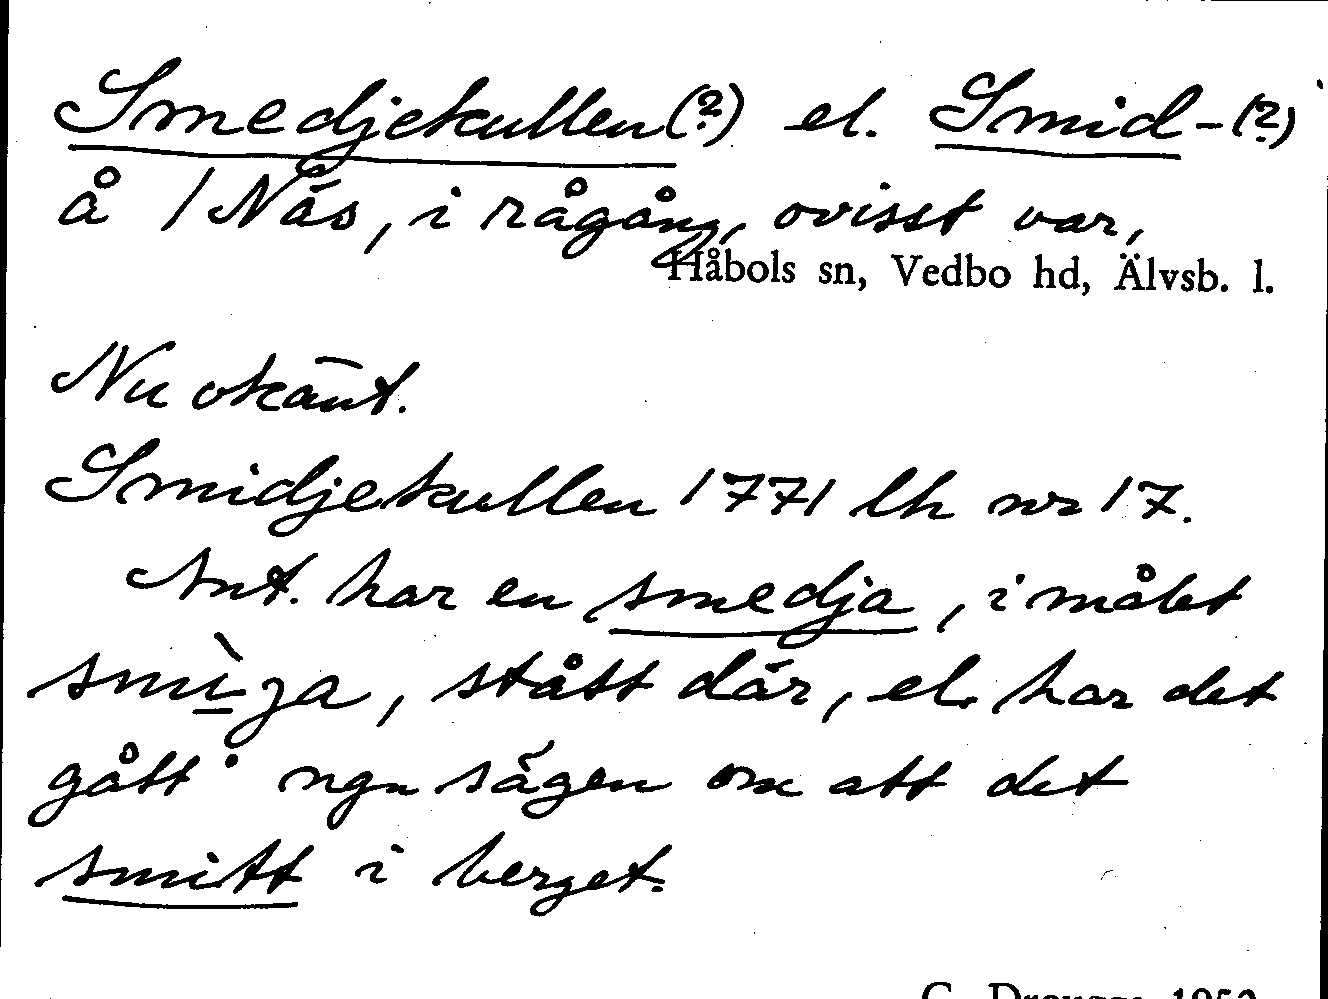 Smedjekullen (?) el. Smid- (?)
å 1 Näs, i rågång, ovisst var,
Håbols sn, Vedbo hd, Älvsb. l.
Nu okänt.
Smidjekullen 1771 lh nr 17.
Ant. har en smedja, i målet
smìja, stått där, el. har det
gått ngn sägen om att det
smitt i berget.